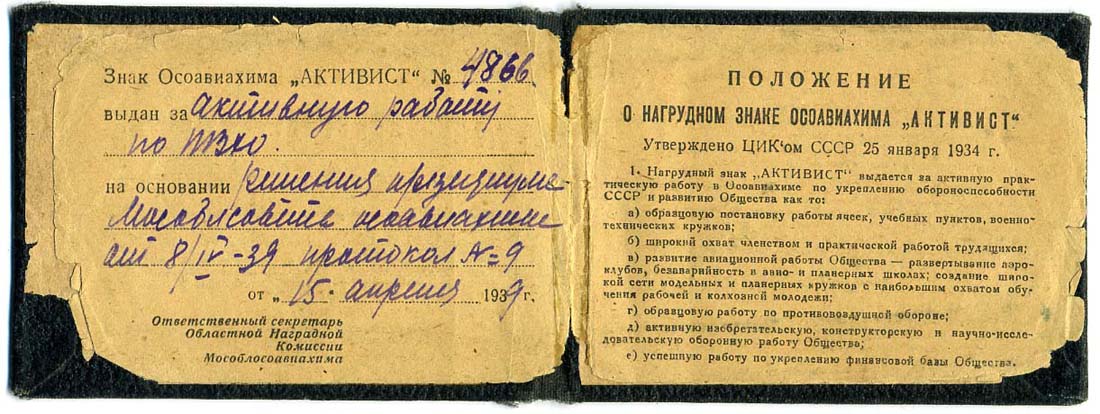 Знак Осоавиахима „АКТИВИСТ“ № 4866
выдан за активную работу
по ПВХО.
на основании решения президиума
Мособлсовета осоавиахима
от 8/IV-39 протокол №9
от „15 - апреля 1939 г.
Ответственный секретарь
Областной Наградной
Комиссии
Мособлосоавиахима
ПОЛОЖЕНИЕ
О НАГРУДНОМ ЗНАКЕ ОСОАВИАХИМА „АКТИВИСТ“
Утверждено ЦИК‘ом СССР 25 января 1934 г.
1. Нагрудный знак „АКТИВИСТ“ выдается за активную прак-
тическую работу в Осоавиахиме по укреплению обороноспособности
СССР и развитию Общества как то:
а) образцовую постановку работы ячеек, учебных пунктов, военно-
технических кружков;
б) широкий охват членством и практической работой трудящихся;
в) развитие авиационной работы Общества — развертывание аэро-
клубов, безаварийность в авио- и планерных школах; создание широ-
кой сети модельных и планерных кружков с наибольшим охватом обу-
чения рабочей и колхозной молодежи;
г) образцовую работу по противовоздушной обороне;
д) активную изобретательскую, конструкторскую и научно-иссле-
довательскую оборонную работу Общества;
е) успешную работу по укреплению финансовой базы Общества.